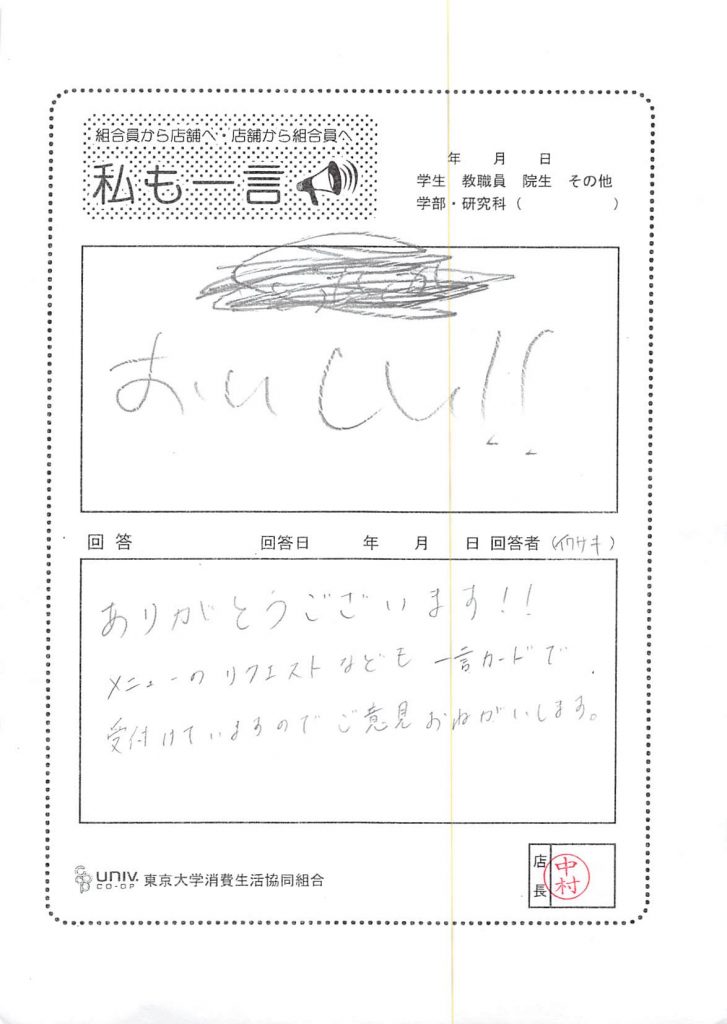 組合員から店舗へ・店舗から組合員へ
私も一言
年 月 日
学生 教職員 院生 その他
学部・研究科（ ）
おいしい!!
回答 回答日 年 月 日 回答者（イワサキ）
ありがとうございます!!
メニューのリクエストなども一言カードで
受付けていますのでご意見おねがいします。
coop UNIV. CO-OP 東京大学消費生活協同組合
店長 中村